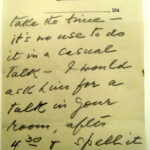 take the time –
it's no use to do
it in a casual
talk – I would
ask him for a
talk in your
room, after
4 30 & spell it